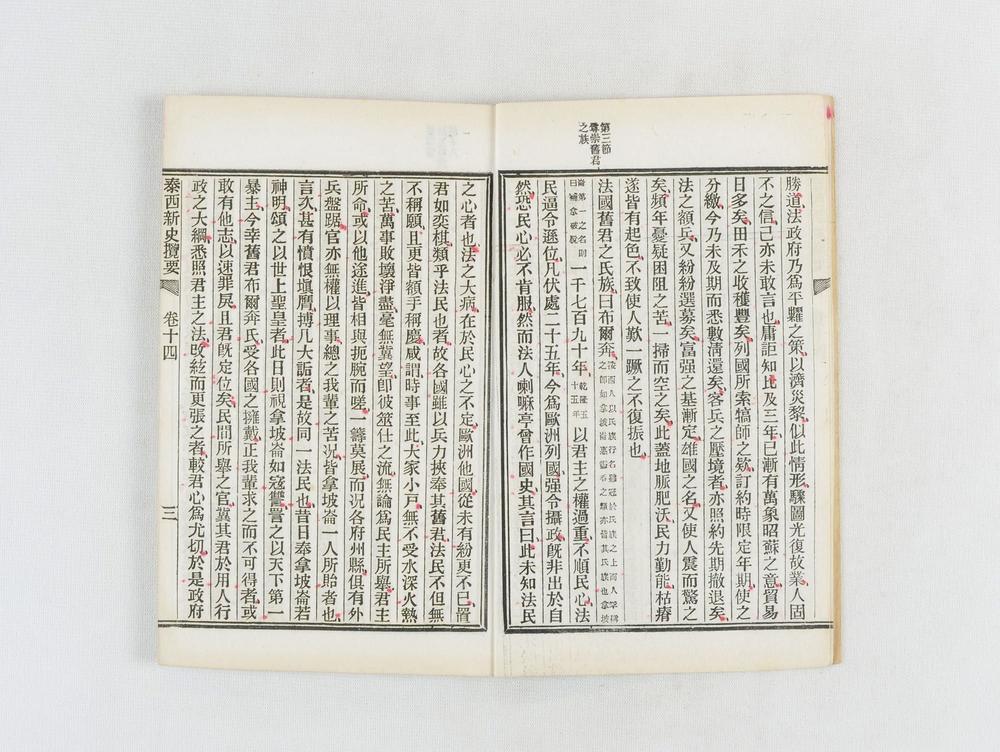 第三節
尊崇舊君
之族
勝道法政府乃爲平糶之策以濟災黎似此情形驟圖光復故業人固
不之信己亦未敢言也庸詎知比及三年已漸有萬象昭蘇之意貿易
日多矣田禾之收穫豐矣列國所索犒師之欵訂約時限定年期使之
分繳今乃未及期而悉數淸還矣客兵之壓境者亦照約先期撤退矣
法之額兵又紛紛選募矣富强之基漸定雄國之名又使人震而驚之
矣頻年憂疑困阻之苦一掃而空之矣此蓋地脈肥沃民力勤能枯瘠
遂皆有起色不致使人歎一蹶之不復振也
法國舊君之氏族曰布爾奔泰西人以氏族行名雖冠於氏族之上而人罕稱
之卽如拿破崙惠靈吞之類亦皆其氏族也拿坡
崙第一之名則
曰補拿破脫一千七百九十年乾隆五
十五年以君主之權過重不順民心法
民逼令遜位凡伏處二十五年今爲歐洲列國强令攝政旣非出於自
然恐民心必不肯服然而法人喇嘛亭曾作國史其言曰此未知法民
之心者也法之大病在於民心之不定歐洲他國從未有紛更不已置
君如奕棋類乎法民也者故各國雖以兵力挾奉其舊君法民不但無
不稱願且更皆額手稱慶咸謂時事至此大家小戶無不受水深火熱
之苦萬事敗壞淨盡毫無冀望卽彼筮仕之流無論爲民主所舉君主
所命或以他途進皆相與扼腕而嗟一籌莫展而況各府州縣俱有外
兵盤踞官亦無權以理事總之我輩之苦況皆拿坡崙一人所貽者也
言次甚有憤恨塡膺搏几大詬者是故同一法民也昔日奉拿坡崙若
神明頌之以世上聖皇者此日則視拿坡崙如寇讐詈之以天下第一
暴主今幸舊君布爾奔氏受各國之擁戴正我輩求之而不可得者或
敢有他志以速罪戾且君旣定位矣民間所舉之官冀其君於用人行
政之大綱悉照君主之法改絃而更張之者較君心爲尤切於是政府
泰西新史攬要
卷十四
三